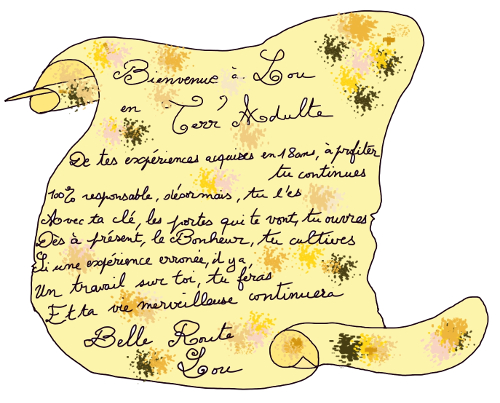 Bienvenue à Lou
en Terr'Adulte
De tes expériences acquises en 18 ans, à profiter
tu continues
100% responsable, désormais, tu l'es
Avec ta clé, les portes qui te vont, tu ouvres
Dès à présent, le Bonheur, tu cultives
Si une expérience erronée, il y a
Un travail sur toi, tu feras
Et ta vie merveilleuse continuera
Belle Route
Lou